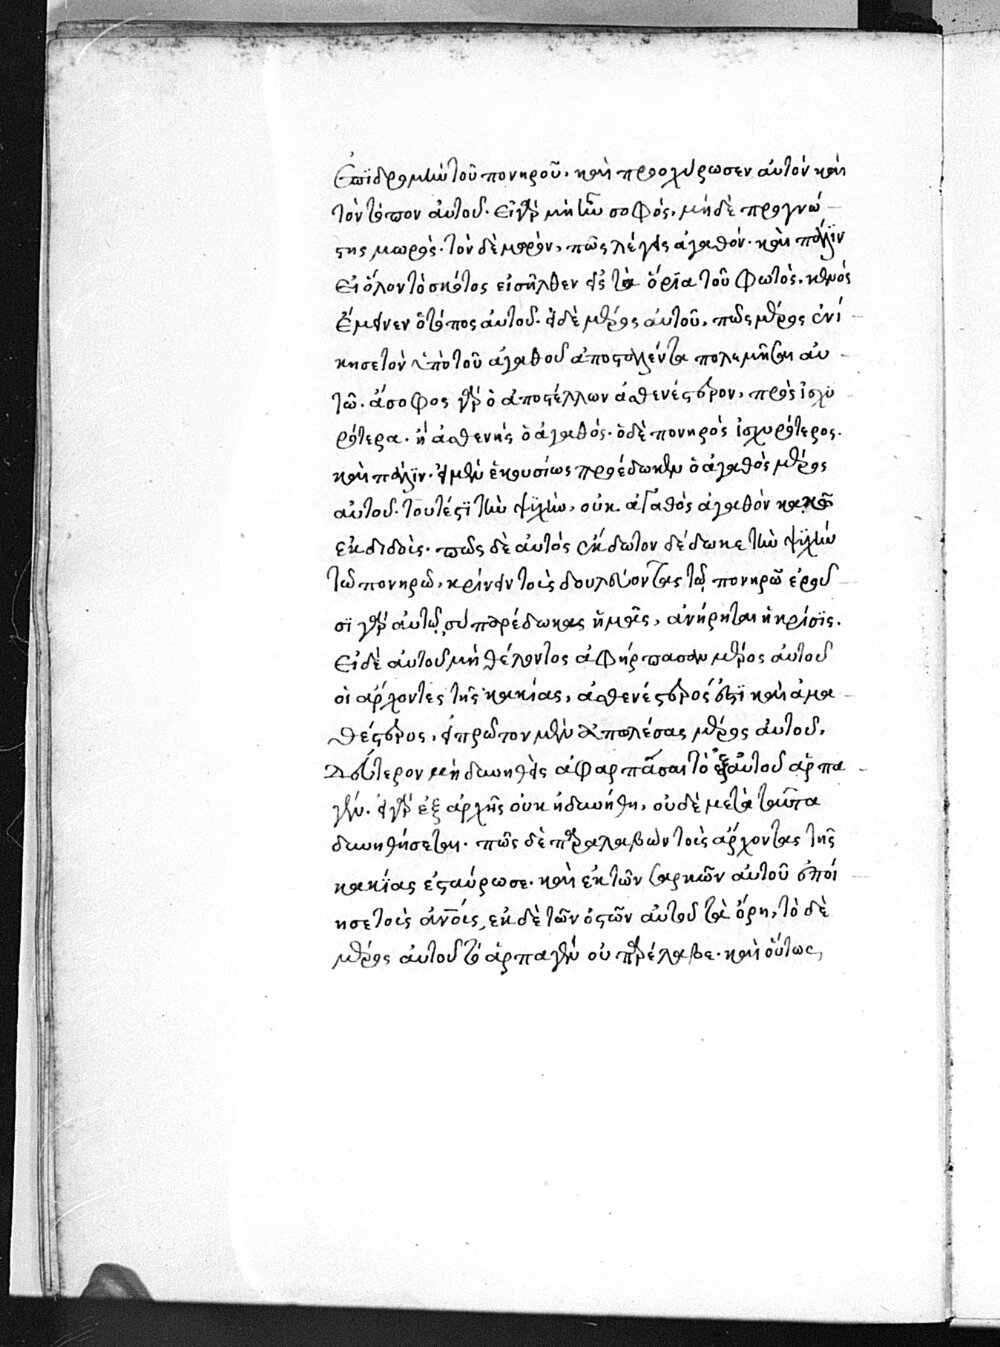 ἐπιδρομὴν τοῦ πονηροῦ. καὶ προοχύρωσεν αὐτὸν καὶ
τὸν τόπον αὐτοῦ. εἰ γὰρ μὴ ἦν σοφός, μήδὲ προγνώ-
στης μωρὸς. τὸν δὲ μωρὸν, πῶς λέγεις ἀγαθόν. καὶ πάλιν
εἰ ὅλον τὸ σκότος εἰσῆλθεν εἰς τὰ ὅρια τοῦ φωτὸς. κενὸς
ἔμεινεν ὁ τόπος αὐτοῦ. εἰ δὲ μέρος αὐτοῦ, πῶς μέρος ἐνί-
κησε τὸν ὑπὸ τοῦ ἀγαθοῦ ἀποσταλέντα πολεμῆσαι αὐ-
τῶ. ἄσοφος γὰρ ὁ ἀποστέλλων ἀσθενέστερον, πρὸς ἰσχυ
ρότερα. ἢ ἀσθενὴς ὁ ἀγαθός. ὁ δὲ πονηρὸς ἰσχυρότερος.
καὶ πάλιν. εἰ μὲν ἑκουσίως προέδωκεν ὁ ἀγαθὸς μέρος
αὐτοῦ. τουτέστι τὴν ψυχὴν, οὐκ ἀγαθὸς ἀγαθὸν κακῶ
ἐκδιδοὺς. πῶς δὲ αὐτὸς ἔκδωτον δέδωκε τὴν ψυχὴν
τῶ πονηρῶ, κρίνειν τοὺς δουλεύοντας τῶ πονηρῶ ἐροῦ-
σι γὰρ αὐτῶ, σὺ παρέδωκας ἡμᾶς, ἀνήρηται ἡ κρίσις.
εἰ δὲ αὐτοῦ μὴ θέλοντος ἀφήρπασαν μέρος αὐτοῦ
οἱ ἄρχοντες τῆς κακίας, ἀσθενέστερός ἐστι καὶ ἀμα-
θέστερος, εἰ πρῶτον μὲν ἀπολέσας μέρος αὐτοῦ,
δεύτερον μὴ δυνηθεὶς ἀφαρπάσαι τὸ ἐξ αὐτοῦ ἁρπα-
γέν. εἰ γὰρ ἐξ ἀρχῆς οὐκ ἠδυνήθη, οὐδὲ μετὰ ταῦτα
δυνηθήσεται. πῶς δὲ παραλαβὼν τοὺς ἄρχοντας τῆς
κακίας ἐσταύρωσε. καὶ ἐκ τῶν σαρκῶν αὐτοῦ ἐποί-
ησε τοὺς ἀνους, ἐκ δὲ τῶν ὀστῶν αὐτοῦ τὰ ὄρη, τὸ δὲ
μέρος αὐτοῦ τὸ ἁρπαγὲν οὐ παρέλαβε. καὶ οὕτως,